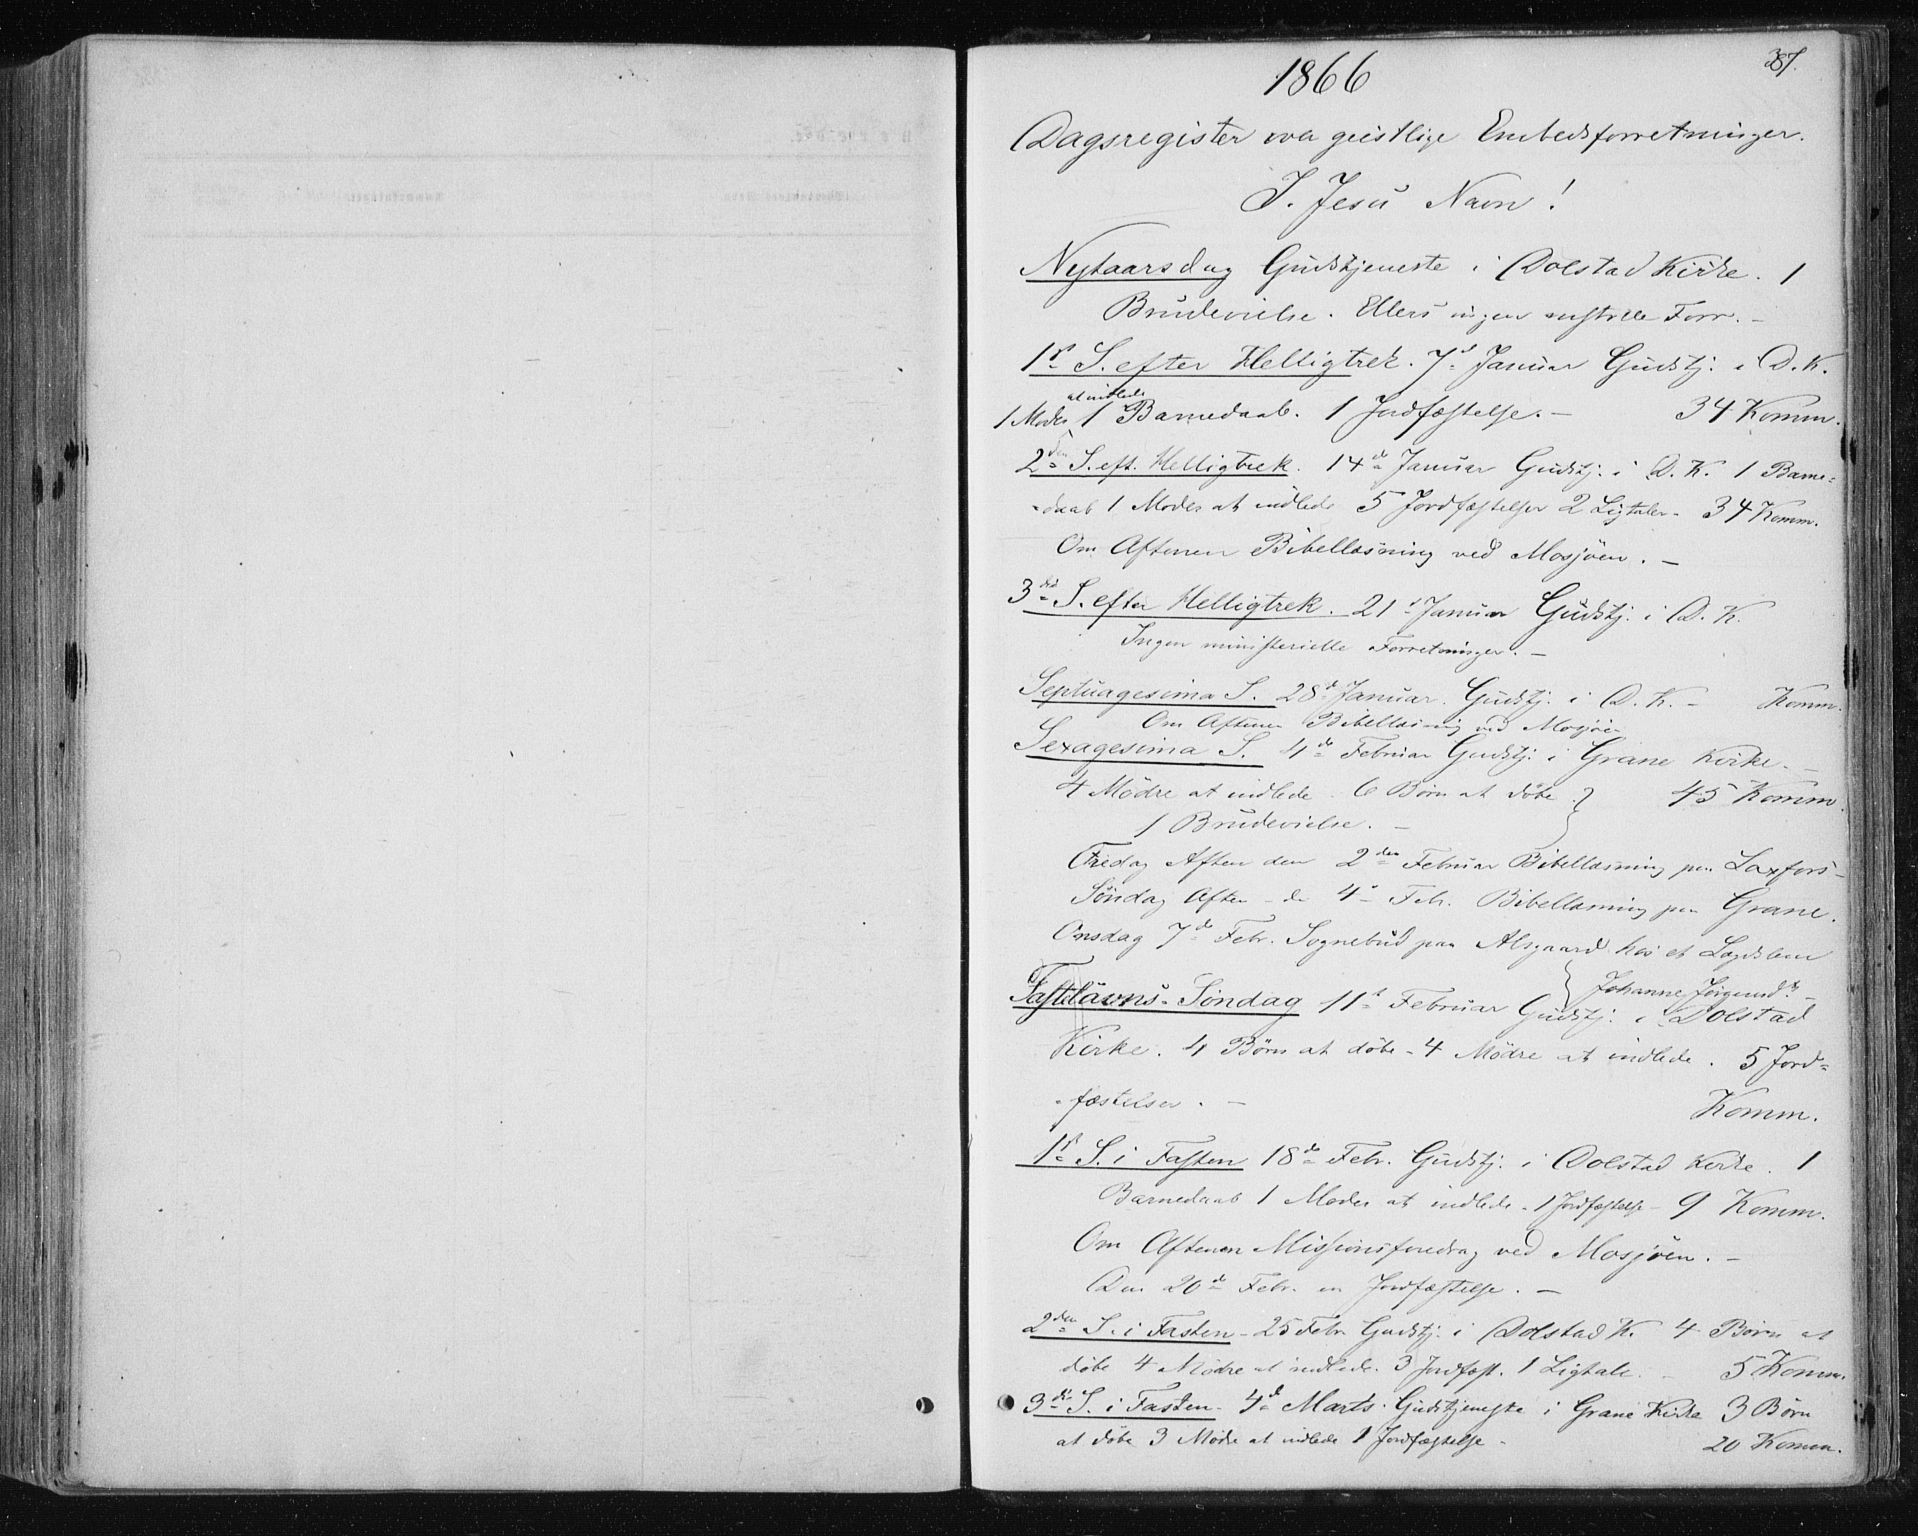 387.
1866
Dagsregister over geistlige Embedsforretninger.
I. Jesu Navn!
Nytaarsdag Gudstjeneste i Dolstad Kirke. 1
Brudevielse. Ellers ingen Forr. –
1st S. efter Helligtrek. 7d Januar Gudstj. i D. K.
at indlede
1 Moder 1 Barnedaab. 1 Jordfæstelse. – 34 Komm.
2den S. eft. Helligtrek. 14de Januar Gudstj. i D. K. 1 Barne-
-daab 1 Moder at indlede 5 Jordfæstelser 2 Ligtaler – 34 Komm.
Om Aftenen Bibellæsning ved Mosjöen. –
3die S. efter Helligtrek. 21d Januar Gudstj. i D. K.
Ingen ministerielle Forretninger. –
Septuagesima S. 28d Januar. Gudstj. i D. K. – Komm.
Om Aftenen Bibellæsning ved Mosjöen
Sexagesima S. 4de Februar Gudstj. i Grane Kirke. –
4 Mödre at indlede. 6 Börn at döbe } 45 Komm.
1 Brudevielse. –
Fredag Aften den 2den Februar Bibellæsning paa Laxfors –
Söndag Aften – d. 4d Feb. Bibellæsning paa Grane.
Onsdag 7de Febr. Sognebud paa Alsgaard hos et Lægdslem
} Johanne Jörgensd. –
Fastelavns-Söndag 11t Februar Gudstj. i Dolstad
Kirke. 4 Börn at döbe – 4 Mödre at indlede. 5 Jord-
-fæstelser. – Komm.
1st S. i Fasten 18de Febr. Gudstj. i Dolstad Kirke. 1
Barnedaab 1 Moder at indlede. 1 Jordfæstelse – 9 Komm.
Om Aftenen Missionsforedrag ved Mosjöen. –
Den 20de Febr. en Jordfæstelse. –
2den S. i Fasten – 25 Febr. Gudstj. i Dolstad K. 4 Börn at
döbe 4 Mödre at indlede. 3 Jordfæst. 1 Ligtale. – 5 Komm.
3die S. i Fasten – 4de Marts. Gudstjeneste i Grane Kirke 3 Börn
at döbe 3 Mödre at indlede 1 Jordfæstelse – 20 Komm.